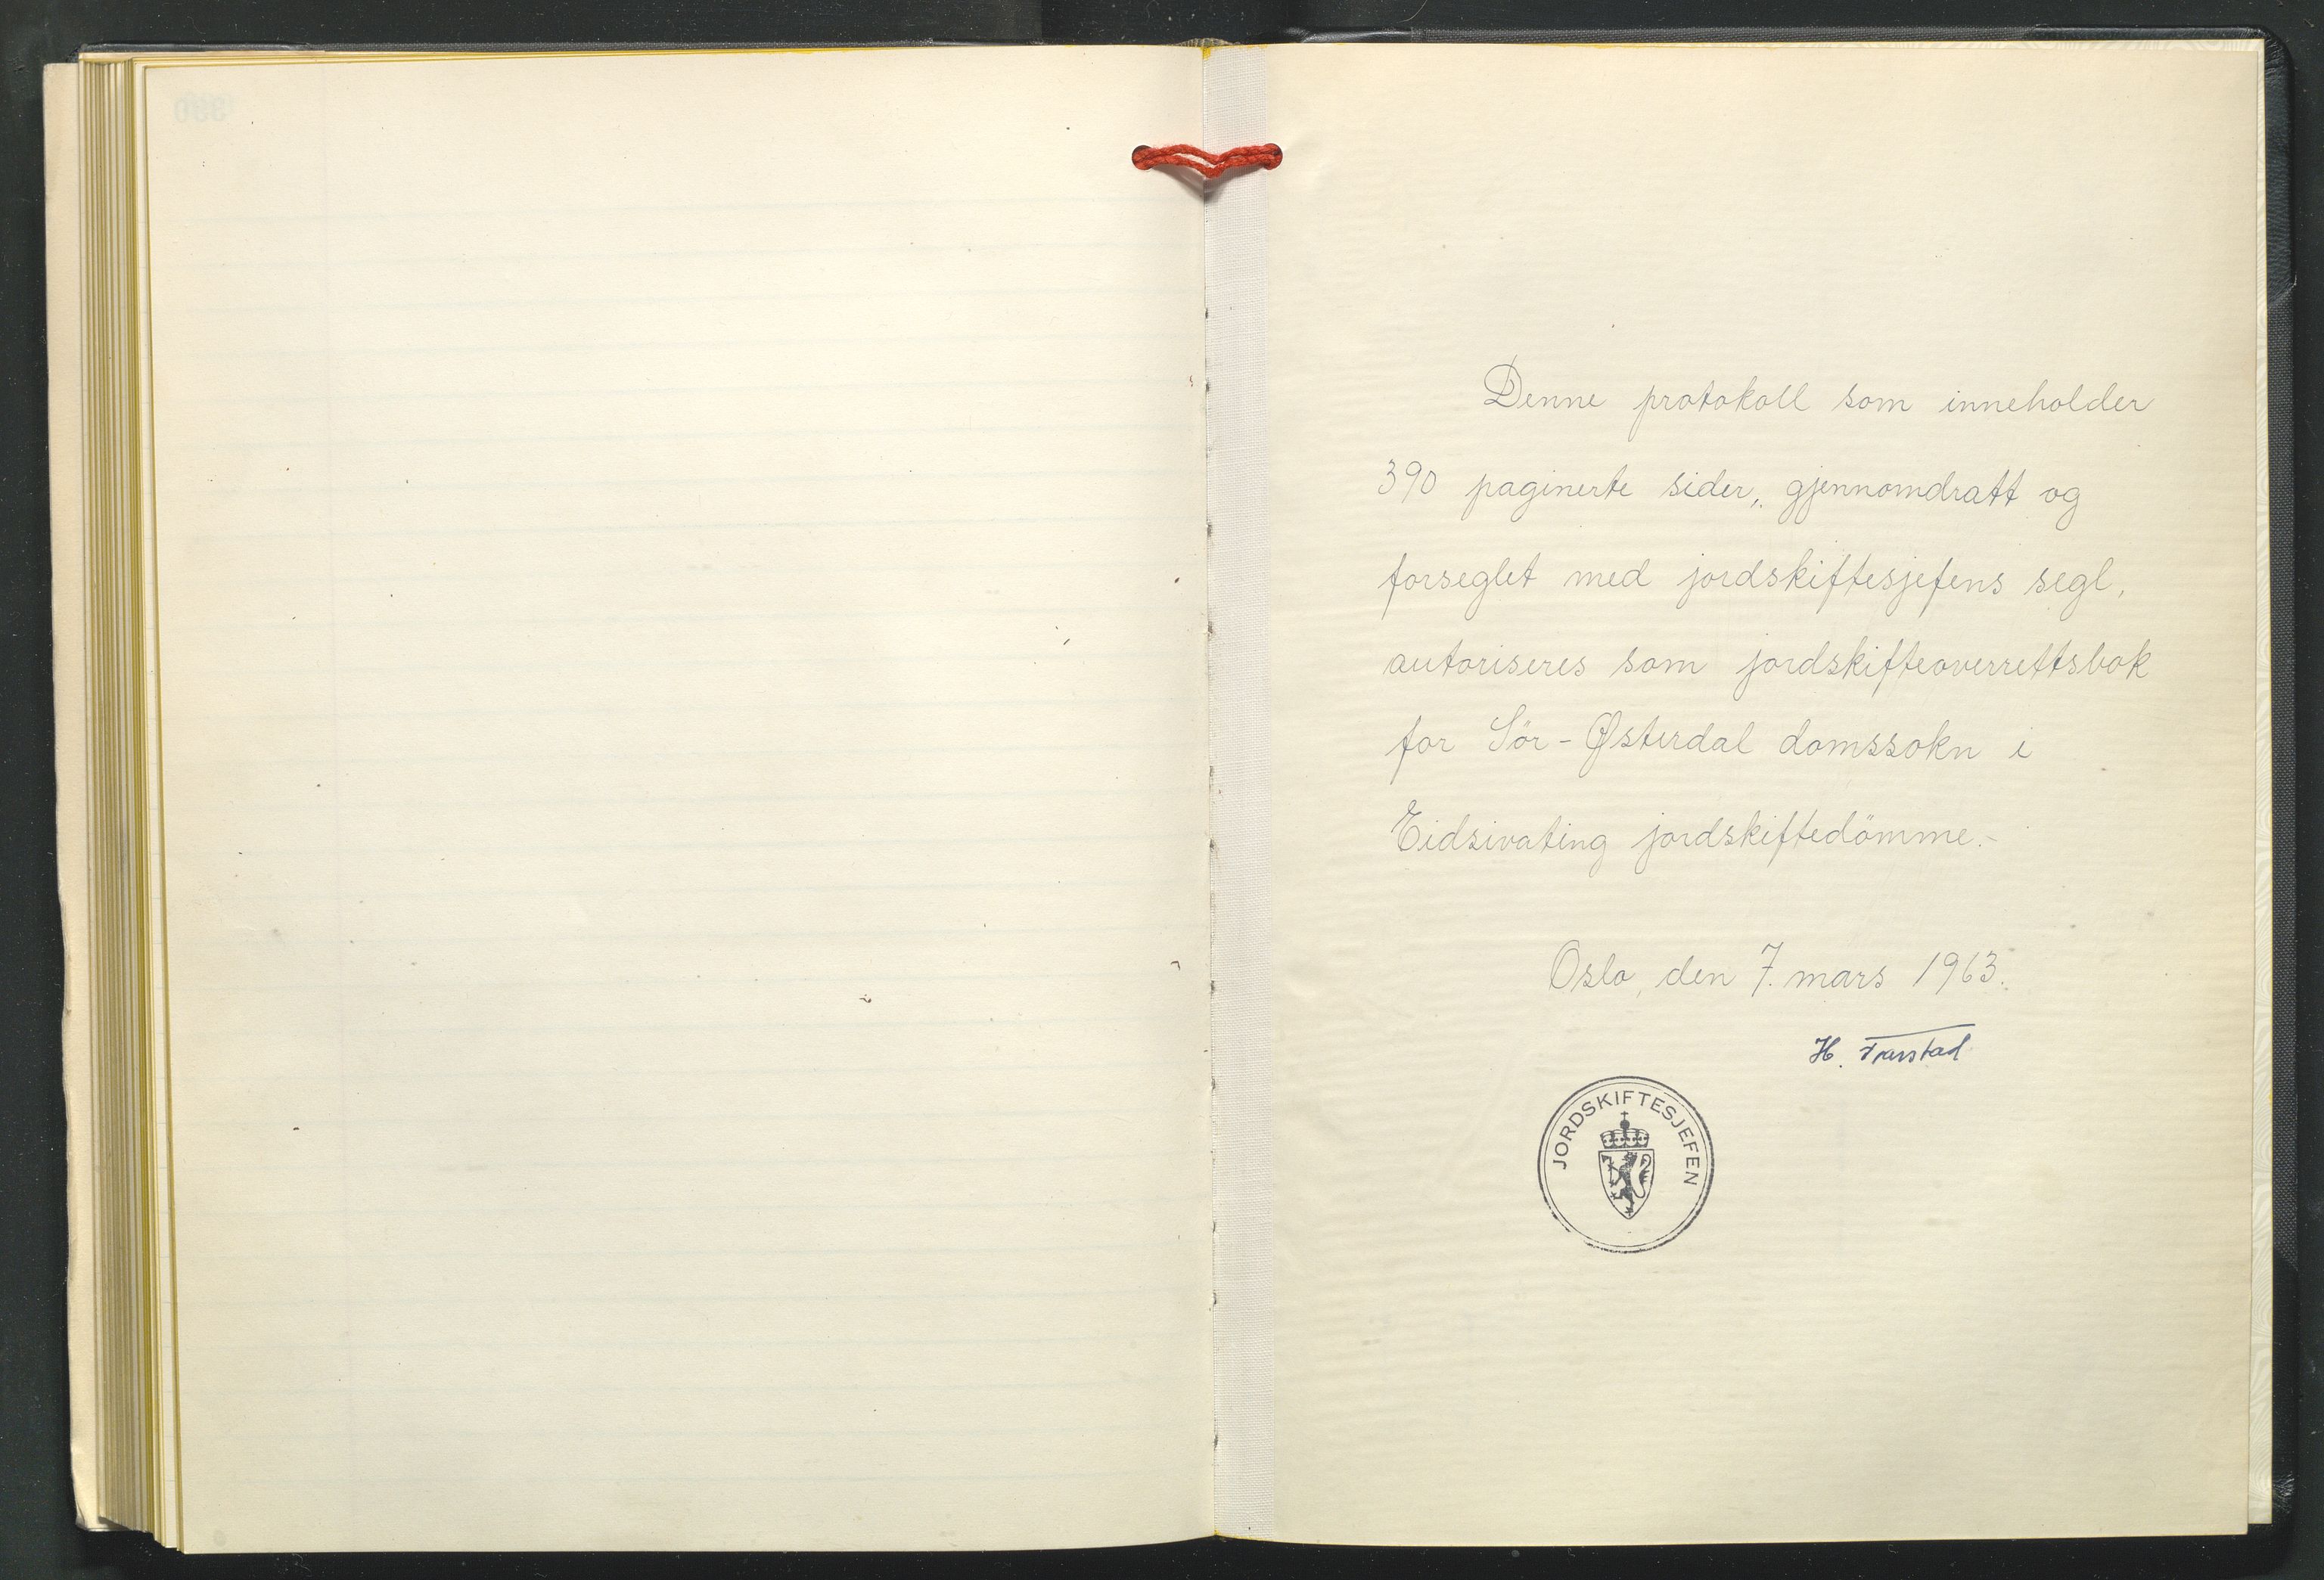 Denne protokoll som inneholder
390 paginerte sider, gjennomdratt og
forseglet med jordskiftesjefens segl,
autoriseres som jordskifteoverrettsbok
for Sör-Østerdal domssokn i
Eidsivating jordskiftedömme.-
Oslo, den 7. mars 1963.
H.
JORDSKIFTESJEFEN